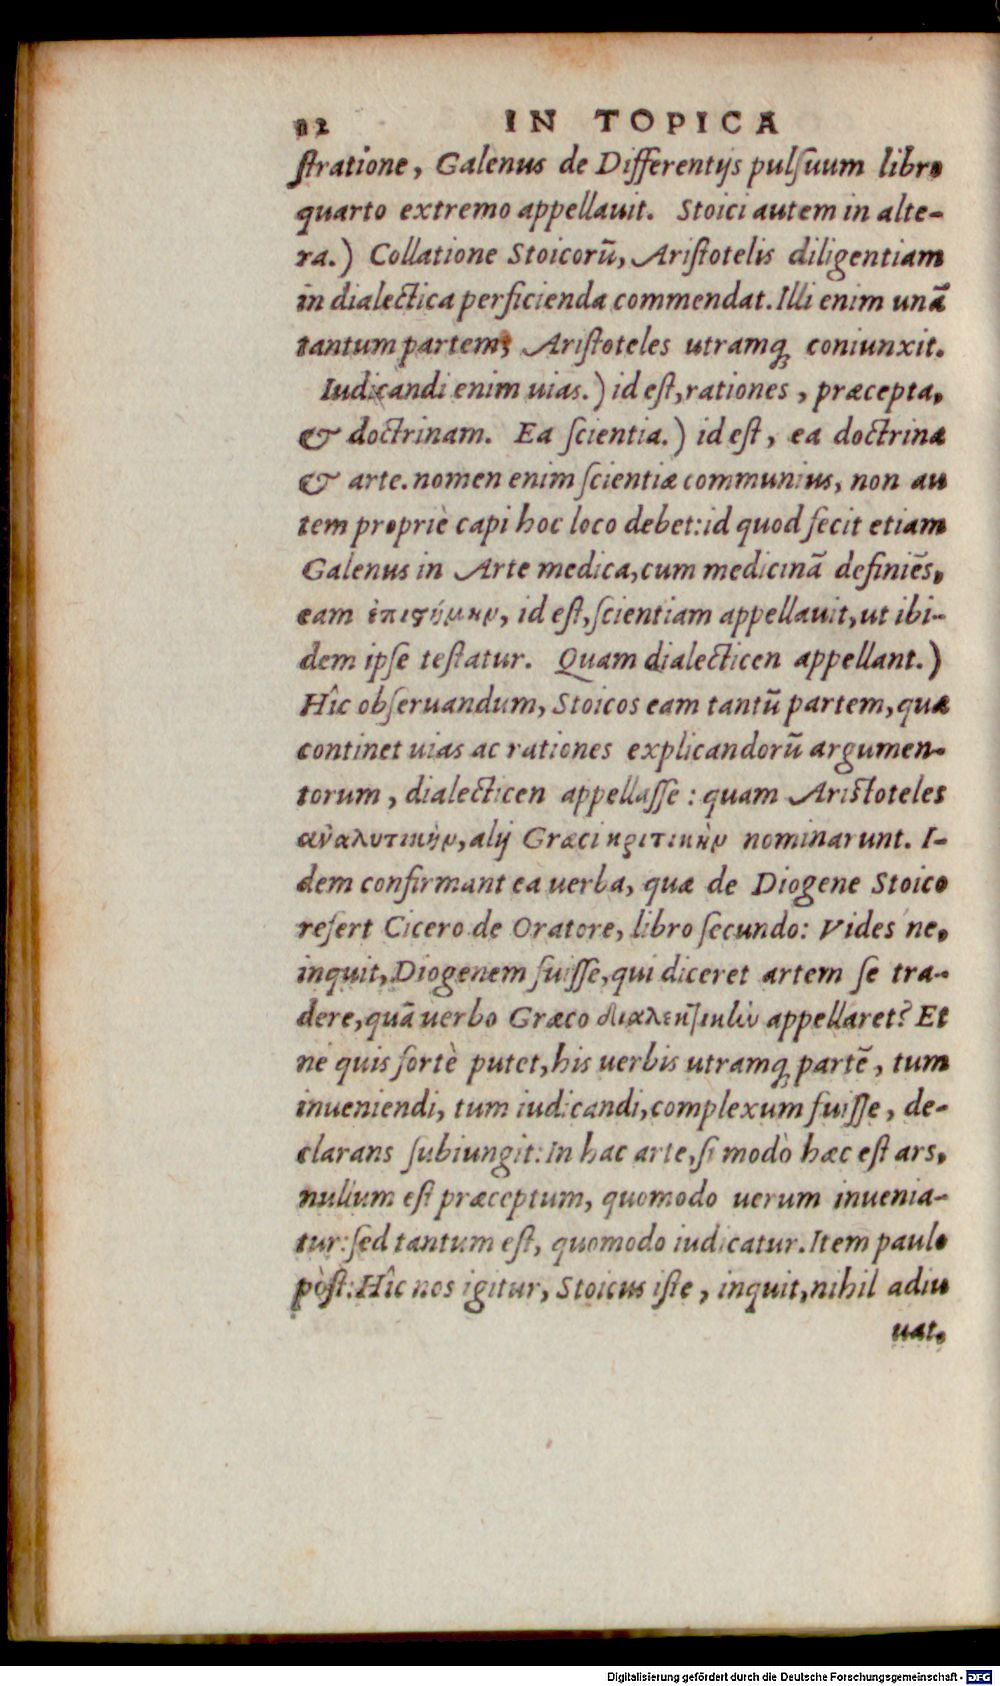 12 IN TOPICA
stratione, Galenus de Differentijs pulsuum libro
quarto extremo appellauit. Stoici autem in alte-
ra.) Collatione Stoicorũ, Aristotelis diligentiam
in dialectica perficienda commendat. Illi enim unã
tantum partem; Aristoteles utramq; coniunxit.
Iudicandi enim uias.) id est, rationes, præcepta,
& doctrinam. Ea scientia.) id est, ea doctrina
& arte. nomen enim scientiæ communius, non au
tem propriè capi hoc loco debet: id quod fecit etiam
Galenus in Arte medica, cum medicinã definiẽs,
eam ἐπιστήμην, id est, scientiam appellauit, ut ibi-
dem ipse testatur. Quam dialecticen appellant.)
Hîc obseruandum, Stoicos eam tantũ partem, quæ
continet uias ac rationes explicandorũ argumen-
torum, dialecticen appellasse: quam Aristoteles
ἀναλυτικὴν, alij Græci κριτικὴν nominarunt. I-
dem confirmant ea uerba, quæ de Diogene Stoico
refert Cicero de Oratore, libro secundo: Vides ne,
inquit, Diogenem fuisse, qui diceret artem se tra-
dere, quã uerbo Græco διαλεκτικὴν appellaret? Et
ne quis fortè putet, his uerbis utramq; partẽ, tum
inueniendi, tum iudicandi, complexum fuisse, de-
clarans subiungit: In hac arte, si modò hæc est ars,
nullum est præceptum, quomodo uerum inuenia-
tur: sed tantum est, quomodo iudicatur. Item paulo
pòst: Hîc nos igitur, Stoicus iste, inquit, nihil adiu
uat.
Digitalisierung gefördert durch die Deutsche Forschungsgemeinschaft - DFG